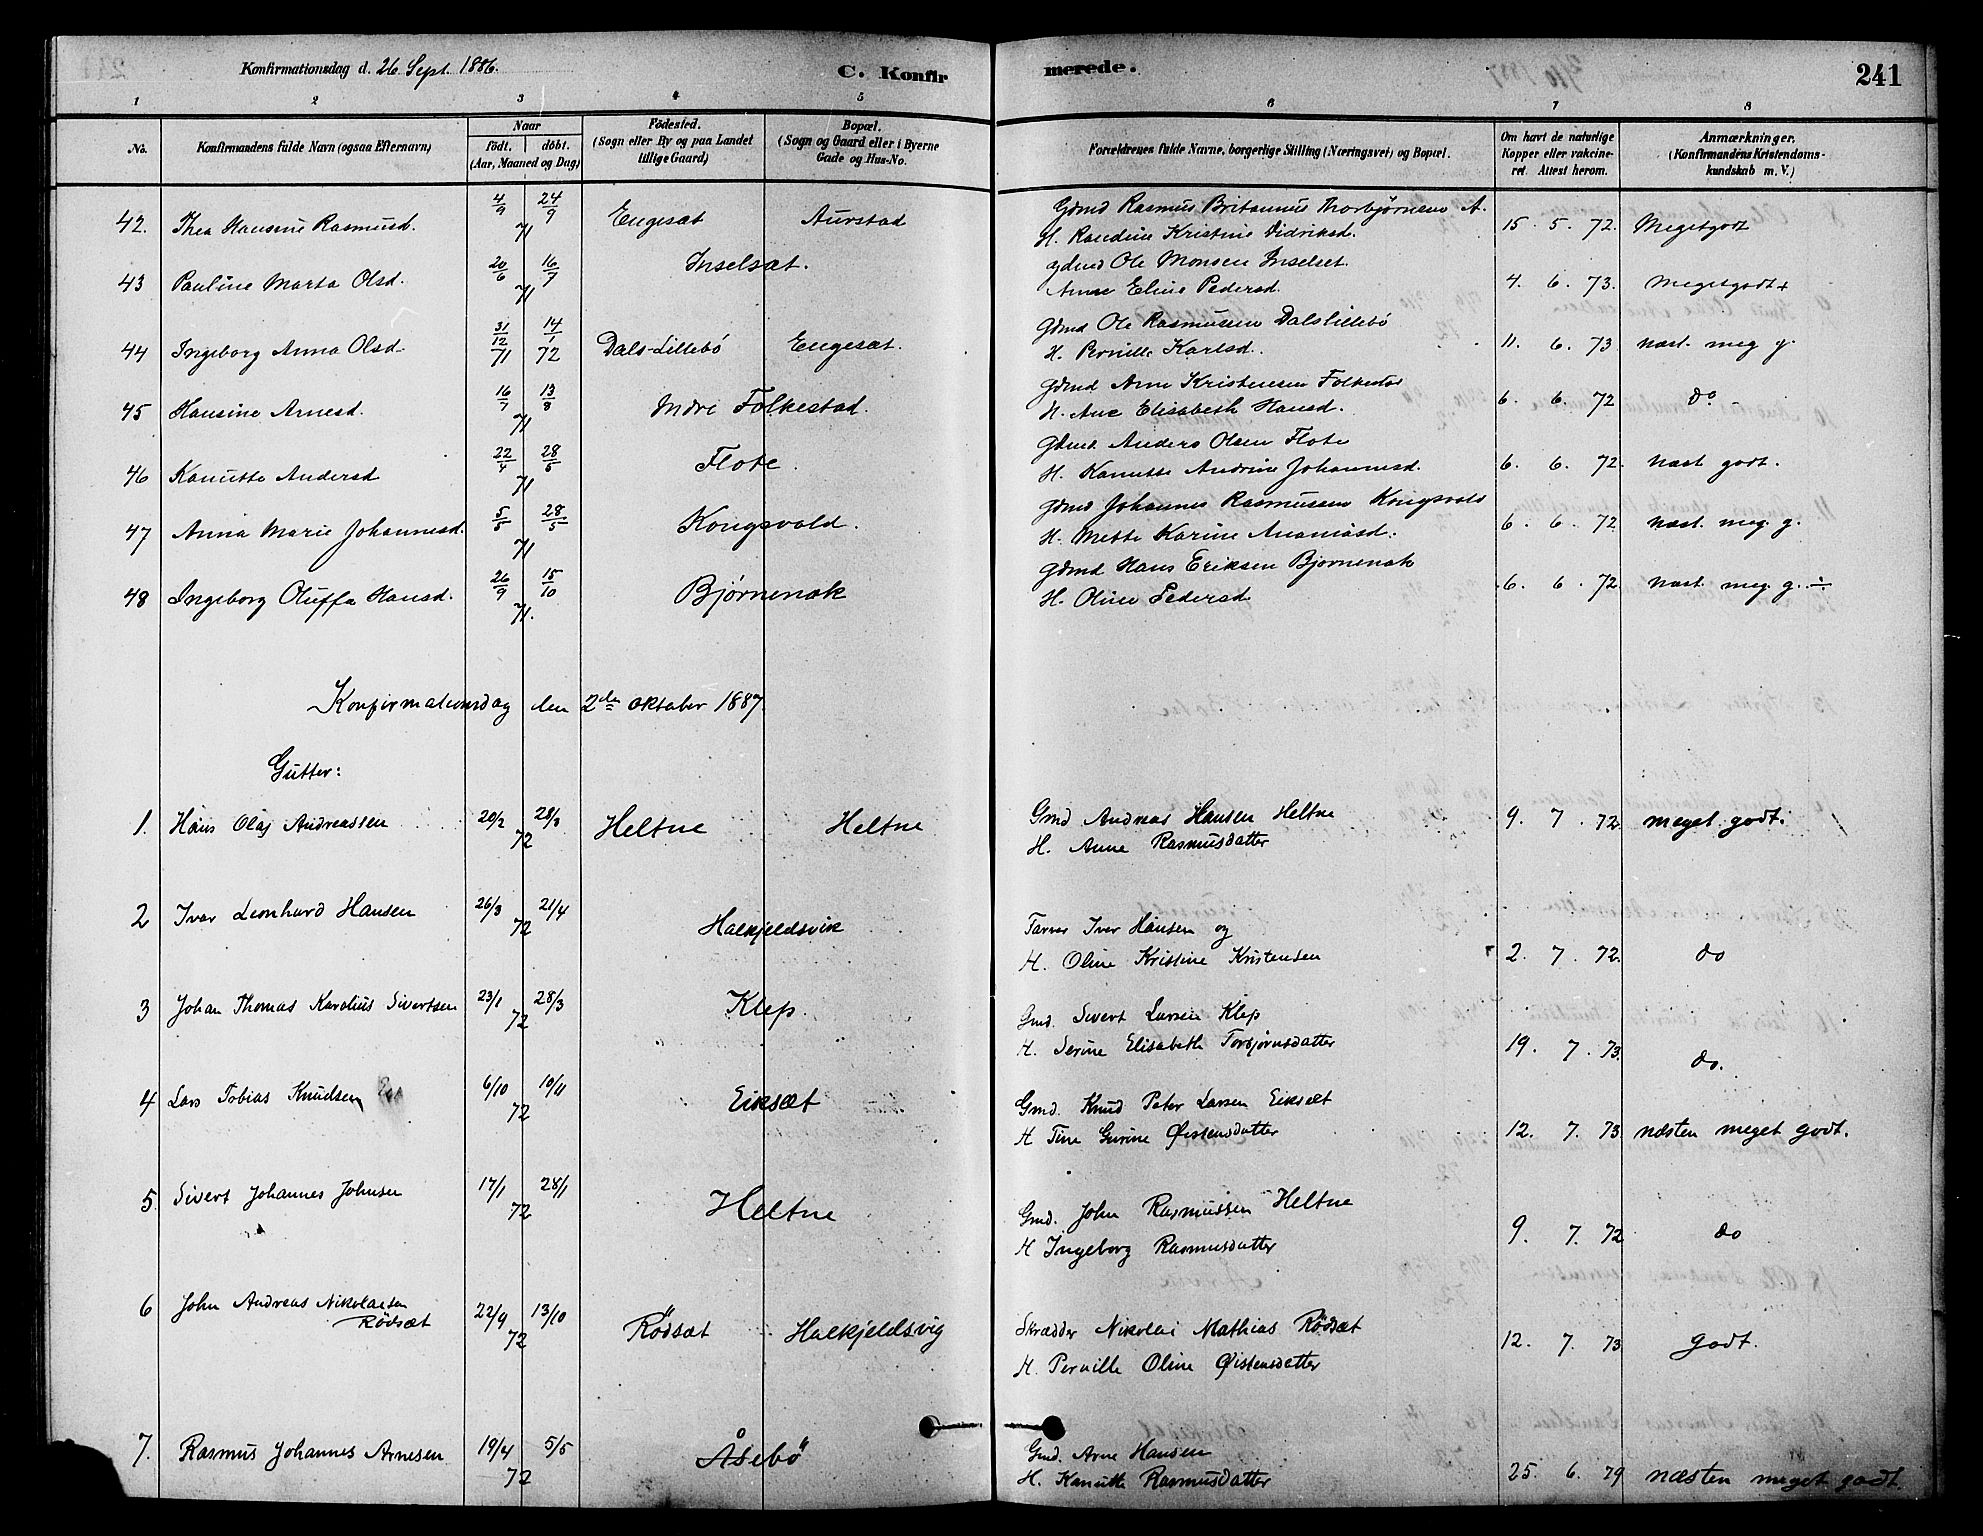 Konfirmationsdag d. 26. Sept. 1886. C. Konfirmerede. 241
1 2 3 4 5 6 7 8
No. Konfirmandens fulde Navn (ogsaa Efternavn) Naar födt. döbt. (Aar, Maaned og Dag) Födested. (Sogn eller By og paa Landet tillige Gaard) Bopæl. (Sogn og Gaard eller i Byerne Gade og Hus-No. Forældrenes fulde Navne, borgerlige Stilling (Næringsvei) og Bopæl. Om havt de naturlige Kopper eller vakcineret. Attest herom. Anmærkninger. (Konfirmandens Kristendomskundskab m. V.)
42. Thea Hansine Rasmusd. 4/9 24/9 71 Engesæt Aurstad Gdmd Rasmus Britannus Thorbjørnsen A. 15. 5. 72. Megetgodt
H. Randine Kristine Didriksd.
43 Pauline Marta Olsd. 20/6 16/7 71 Inselsæt. Gdmd Ole Monsen Inselset. 4. 6. 73. Megetgodt+
Anne Eline Pedersd.
44 Ingeborg Anna Olsd. 31/12 71 14/1 72 Dals-Lillebö Engesæt. Gdmd Ole Rasmussen Dalslillebö 11. 6. 73 næst. meg g.
H. Pernille Karlsd.
45 Hansine Arnesd. 16/7 13/8 71 Indre Folkestad. Gdmd Arne Kristensen Folkestad 6. 6. 72 do
H. Ane Elisabeth Hansd.
46 Kanutte Andersd 22/4 28/5 71 Flote. Gdmd. Anders Olsen Flote 6. 6. 72. næst godt.
H. Kanutte Andrine Johannesd.
47 Anna Marie Johannesd. 5/5 28/5 71 Kongsvold. Gdmd Johannes Rasmussen Kongsvold 6. 6. 72. næst. meg. g.
H. Mette Karine Ananiasd.
48 Ingeborg Oluffa Hansd. 26/9 15/10 71. Bjørnenak Gdmd Hans Eriksen Bjørnenak 6. 6. 72 næst meg g. ÷
H. Oline Pedersd
Konfirmationsdag den 2den oktober 1887.
Gutter:
1. Hans Olaj Andreassen 20/2 28/3 72 Heltne Heltne Gmd Andreas Hansen Heltne 9. 7. 72 meget godt.
H. Anne Rasmusdatter
2 Ivar Leonhard Hansen 26/3 21/4 72 Halkjeldsvik Farver Iver Hansen og 2. 7. 72. do
H. Oline Kristine Kristensen
3 Johan Thomas Karolius Sivertsen 23/1 28/3 72 Klep. Gmd. Sivert Larsen Klep 19. 7. 73. do.
H. Serine Elisabeth Torbjørnsdatter
4 Lars Tobias Knudsen 6/10 10/11 72 Eiksæt Gmd. Knud Peter Larsen Eiksæt 12. 7. 73 næsten meget godt.
H Tine Gurine Øistensdatter
5. Sivert Johannes Johnsen 17/1 28/1 72 Heltne Gmd. John Rasmussen Heltne 9. 7. 72 do
H Ingeborg Rasmusdatter
6 John Andreas Nikolaisen Rödsæt 22/9 13/10 72 Rödsæt Halkjeldsvig Skrædder Nikolai Mathias Rödsæt 12. 7. 73 godt.
H. Pernille Oline Øistensdatter
7. Rasmus Johannes Arnesen 19/4 5/5 72 Åsebö Gmd. Arne Hansen 25. 6. 79 næsten meget godt.
H. Kanutte Rasmusdatter